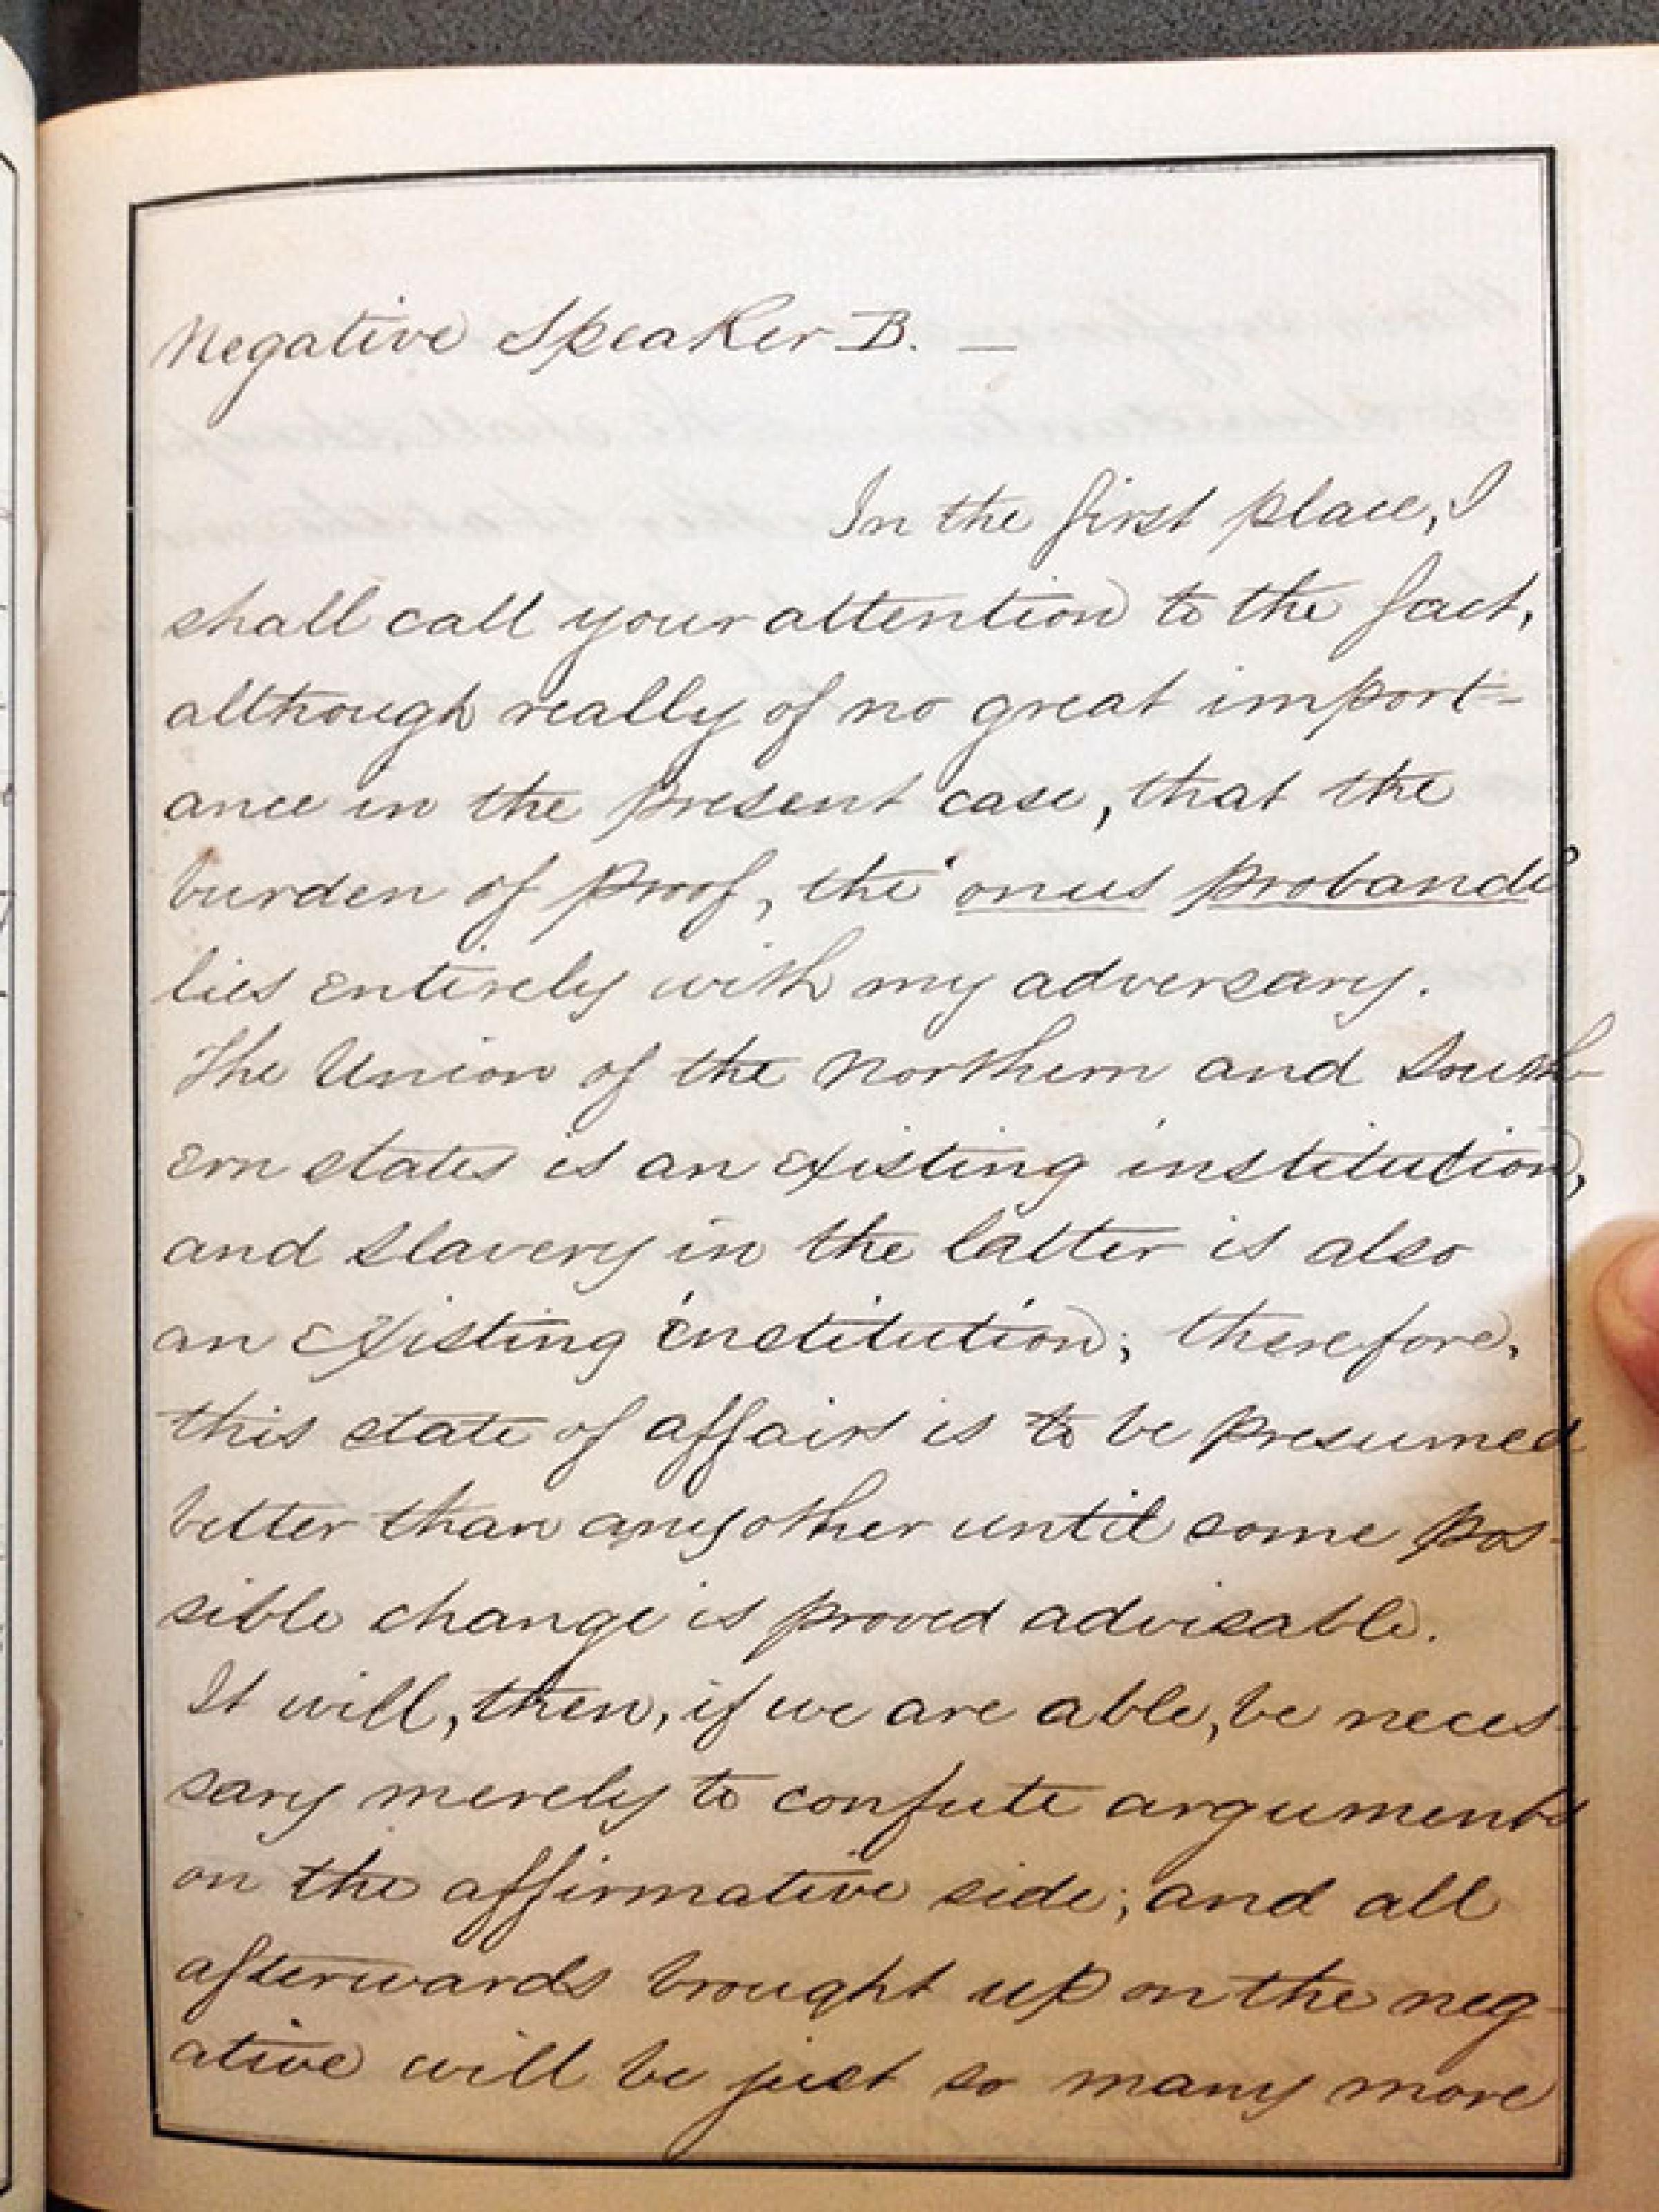 Negative Speaker B. —
In the first place, I
shall call your attention to the fact,
although really of no great import-
ance in the present case, that the
burden of proof, the 'onus probandi'
lies entirely with my adversary.
The Union of the Northern and South-
ern states is an existing institution,
and slavery in the latter is also
an existing institution; therefore,
this state of affairs is to be presumed
better than any other until some pos-
sible change is proved advisable.
It will, then, if we are able, be neces-
sary merely to confute arguments
on the affirmative side; and all
afterwards brought up on the neg-
ative will be just so many more